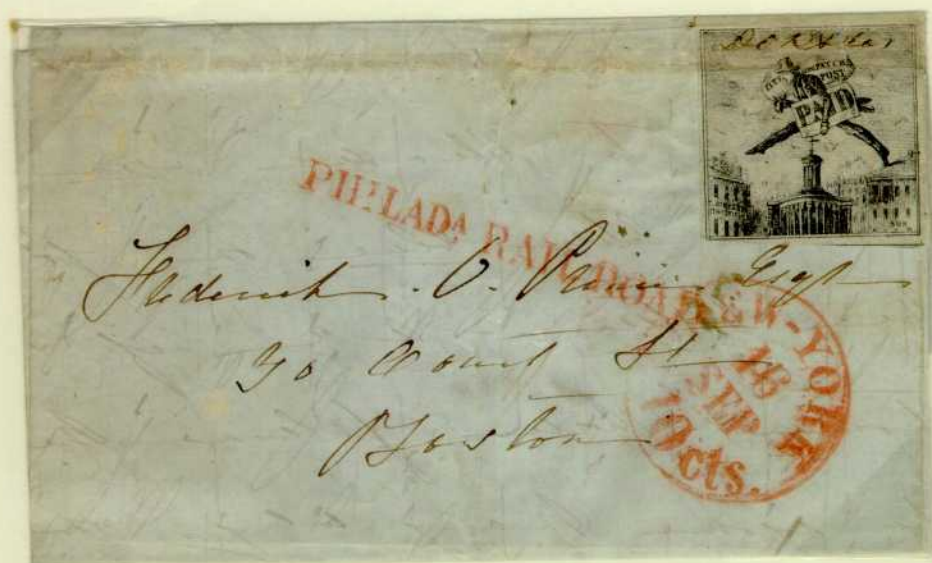 CITY DESPATCH
POST
PAID
PHILADA RAILROAD
Frederick. O. Prince Esqr
30 Court St
Boston
NEW-YORK
16
SEP
10cts.